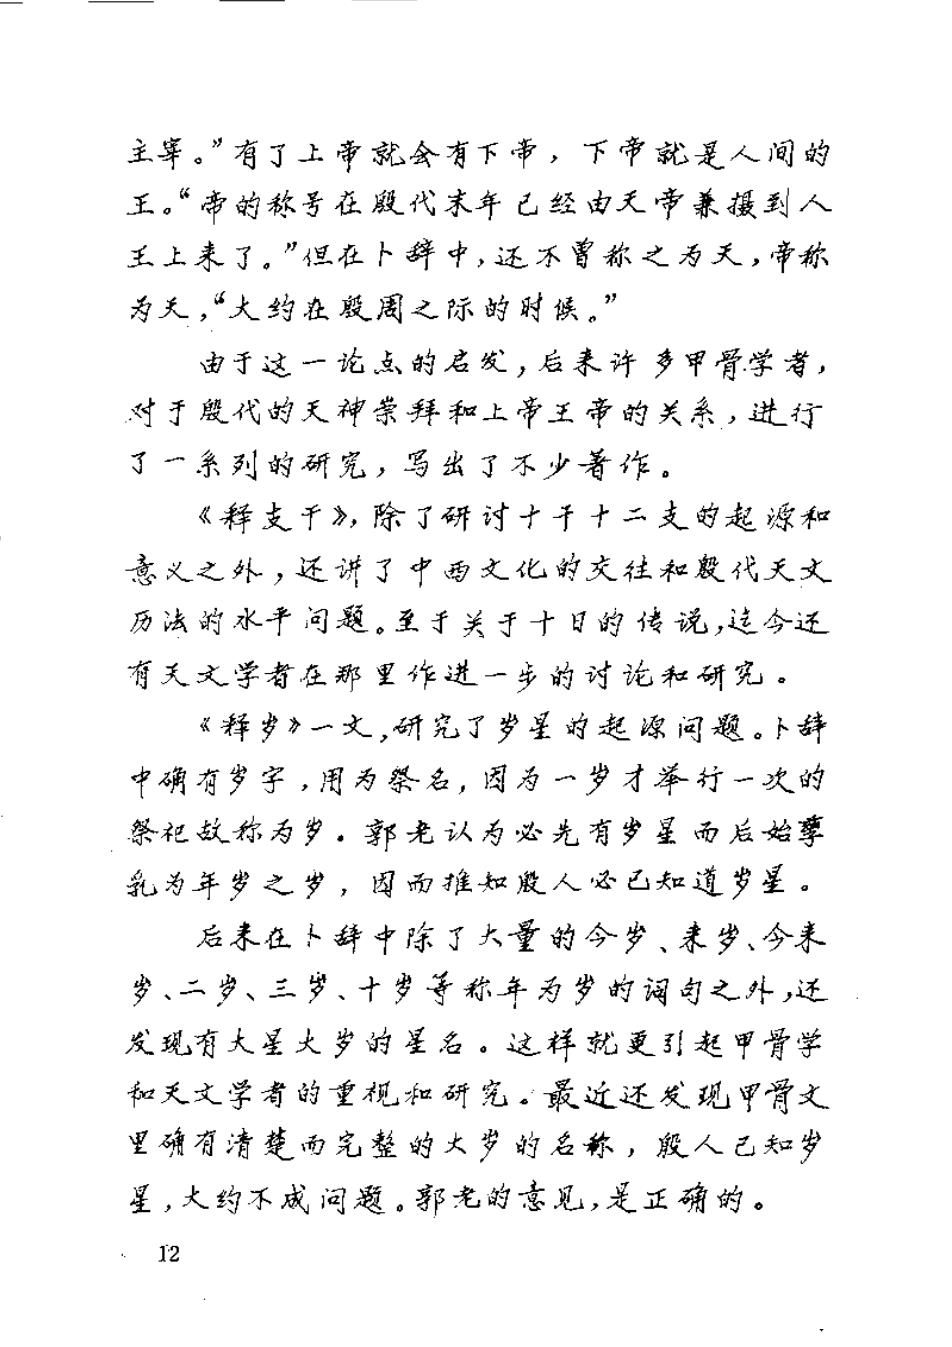 主宰。”有了上帝就会有下帝，下帝就是人间的
王。“帝的称号在殷代末年已经由天帝兼摄到人
王上来了。”但在卜辞中，还不曾称之为天，帝称
为天，“大约在殷周之际的时候。”
由于这一论点的启发，后来许多甲骨学者，
对于殷代的天神崇拜和上帝王帝的关系，进行
了一系列的研究，写出了不少著作。
《释支干》，除了研讨十干十二支的起源和
意义之外，还讲了中西文化的交往和殷代天文
历法的水平问题。至于关于十日的传说，迄今还
有天文学者在那里作进一步的讨论和研究。
《释岁》一文，研究了岁星的起源问题。卜辞
中确有岁字，用为祭名，因为一岁才举行一次的
祭祀故称为岁。郭老认为必先有岁星而后始孳
乳为年岁之岁，因而推知殷人必已知道岁星。
后来在卜辞中除了大量的今岁、来岁、今来
岁、二岁、三岁、十岁等称年为岁的词句之外，还
发现有大星大岁的星名。这样就更引起甲骨学
和天文学者的重视和研究。最近还发现甲骨文
里确有清楚而完整的大岁的名称，殷人已知岁
星，大约不成问题。郭老的意见，是正确的。
12